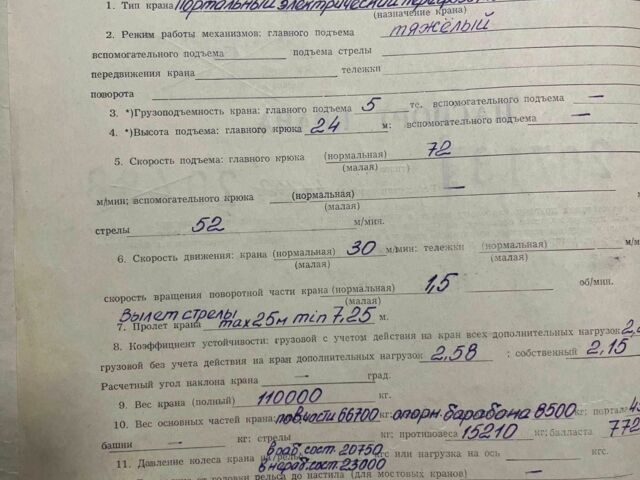 1. Тип крана Портальный электрический
(назначение крана)
2. Режим работы механизмов: главного подъема тяжёлый
вспомогательного подъема подъема стрелы
передвижения крана тележки
поворота
3. *)Грузоподъемность крана: главного подъема 5 тс, вспомогательного подъема —
4. *)Высота подъема: главного крюка 24 м; вспомогательного подъема —
5. Скорость подъема: главного крюка (нормальная) 72
(малая)
м/мин; вспомогательного крюка (нормальная) —
(малая)
стрелы 52 м/мин.
6. Скорость движения: крана (нормальная) 30 м/мин: тележки (нормальная)
(малая) (малая)
скорость вращения поворотной части крана (нормальная) 1,5 об/мин.
(малая)
Вылет стрелы
7. Пролет крана max 25м min 7,25 м.
8. Коэффициент устойчивости: грузовой с учетом действия на кран всех дополнительных нагрузок
грузовой без учета действия на кран дополнительных нагрузок 2,58 ; собственный 2,15
Расчетный угол наклона крана — град.
9. Вес крана (полный) 110000 кг.
10. Вес основных частей крана: пов.части 66700 кг. опорн. барабона 8500 кг; портала
башни — кг; стрелы кг; противовеса 15210 кг; балласта 772
в раб. сост. 20750
11. Давление колеса крана на рельс кгс или нагрузка на ось кгс.
в нераб. сост. 23000
от головки рельса до настила (для мостовых кранов) —